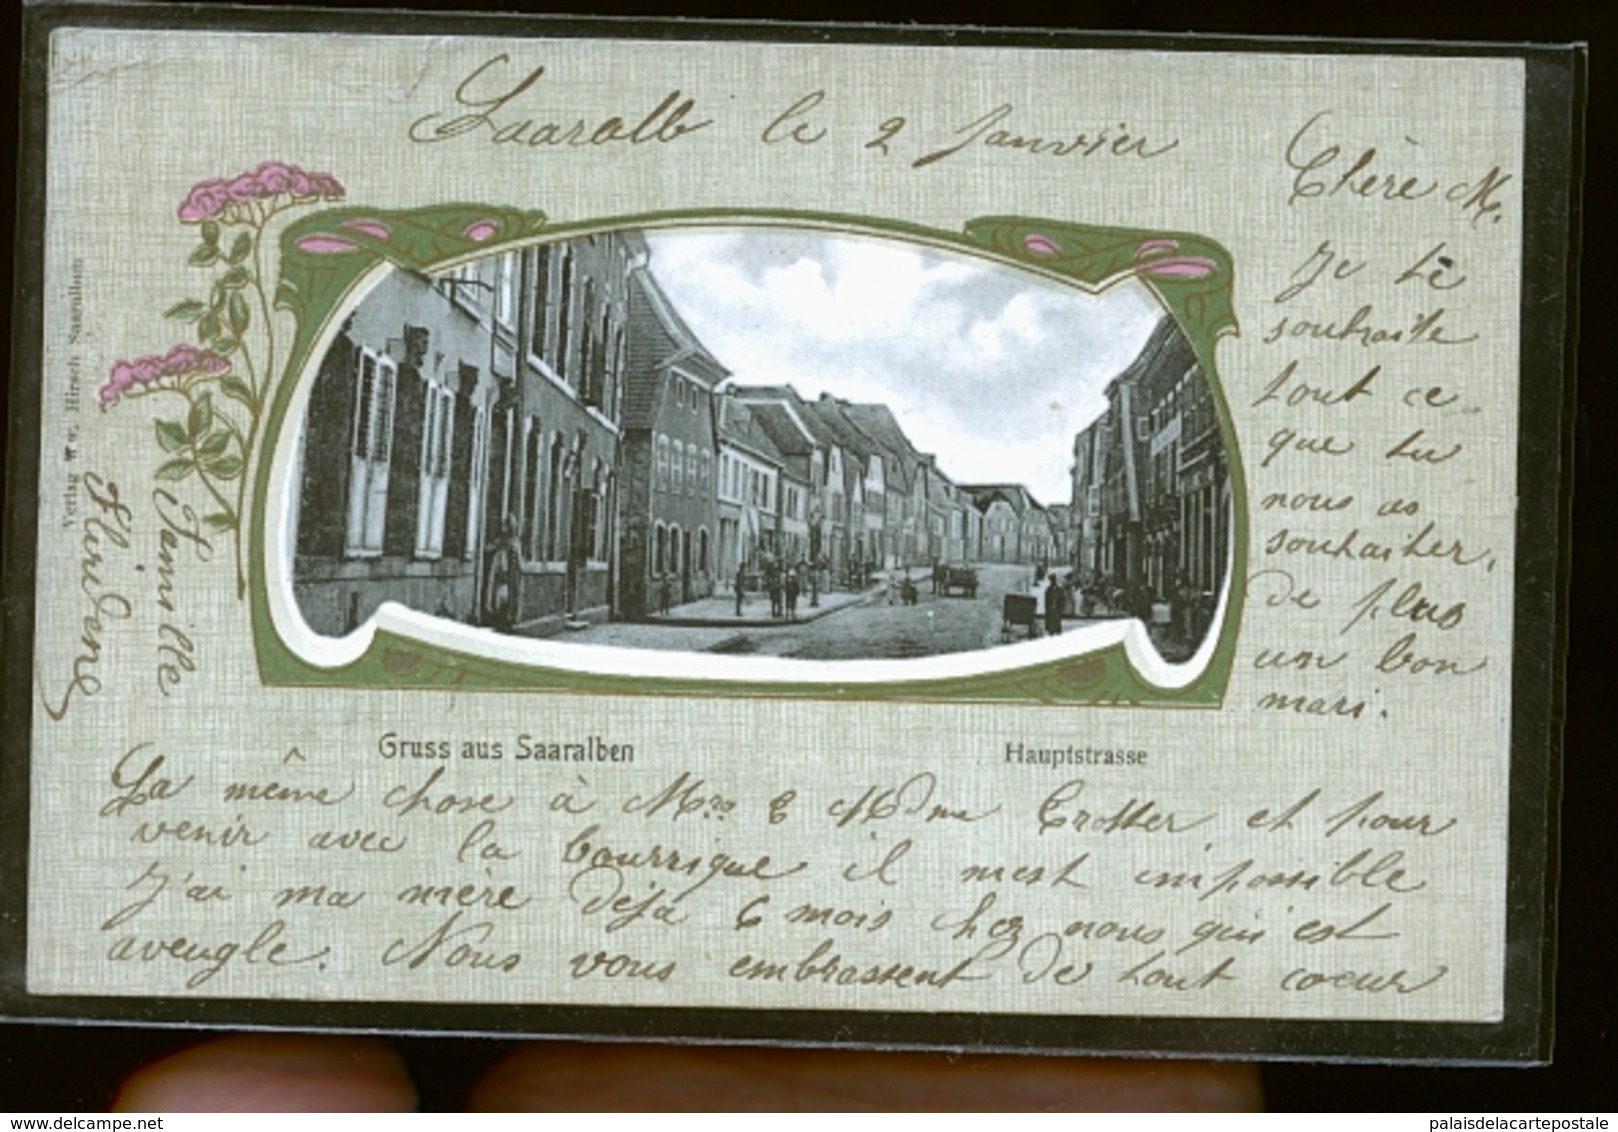 Saaralb le 2 Janvier
Chère M.
Je te
souhaite
tout ce
que tu
nous as
souhaiter,
de plus
un bon
mari.
Verlag Ww. Hirsch Saaralben
Gruss aus Saaralben
Hauptstrasse
La même chose à Mrs & Mdme et pour
venir avec la bourrique il mest impossible
J'ai ma mère déja 6 mois chez nous qui est
aveugle. Nous vous embrassent de tout coeur
Famille
delcampe.net
palaisdelacartepostale